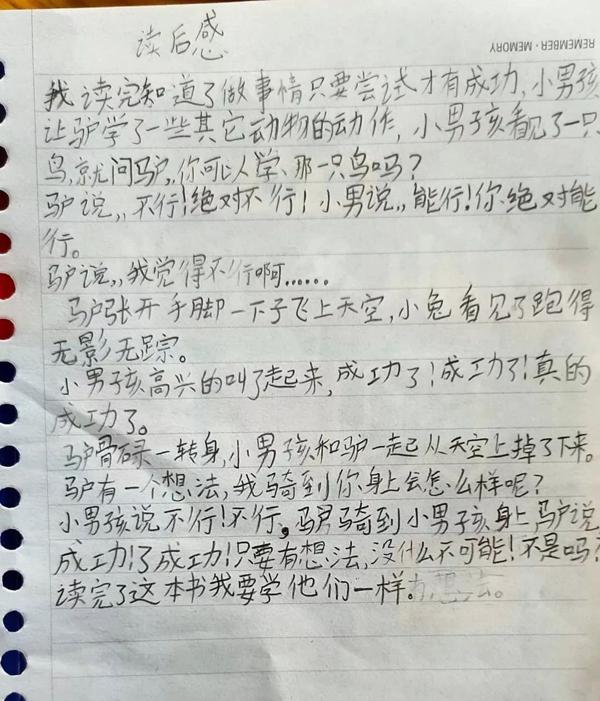 读后感
REMEMBER·MEMORY
我读完知道了做事情只要尝试才有成功,小男孩
让驴学了一些其它动物的动作,小男孩看见了一只
鸟,就问驴,,你可以学那一只鸟吗?
驴说,,不行!绝对不行!小男说,,能行!你绝对能
行。
驴说,,我觉得不行啊......
驴张开手脚一下子飞上天空,小兔看见了跑得
无影无踪。
小男孩高兴的叫了起来,成功了!成功了!真的
成功了。
驴骨碌一转身,小男孩和驴一起从天空上掉了下来。
驴有一个想法,我骑到你身上会怎么样呢?
小男孩说不行!不行。驴骑到小男孩身上驴说
成功!了成功!只要有想法,没什么不可能!不是吗?
读完了这本书我要学他们一样。有想法。